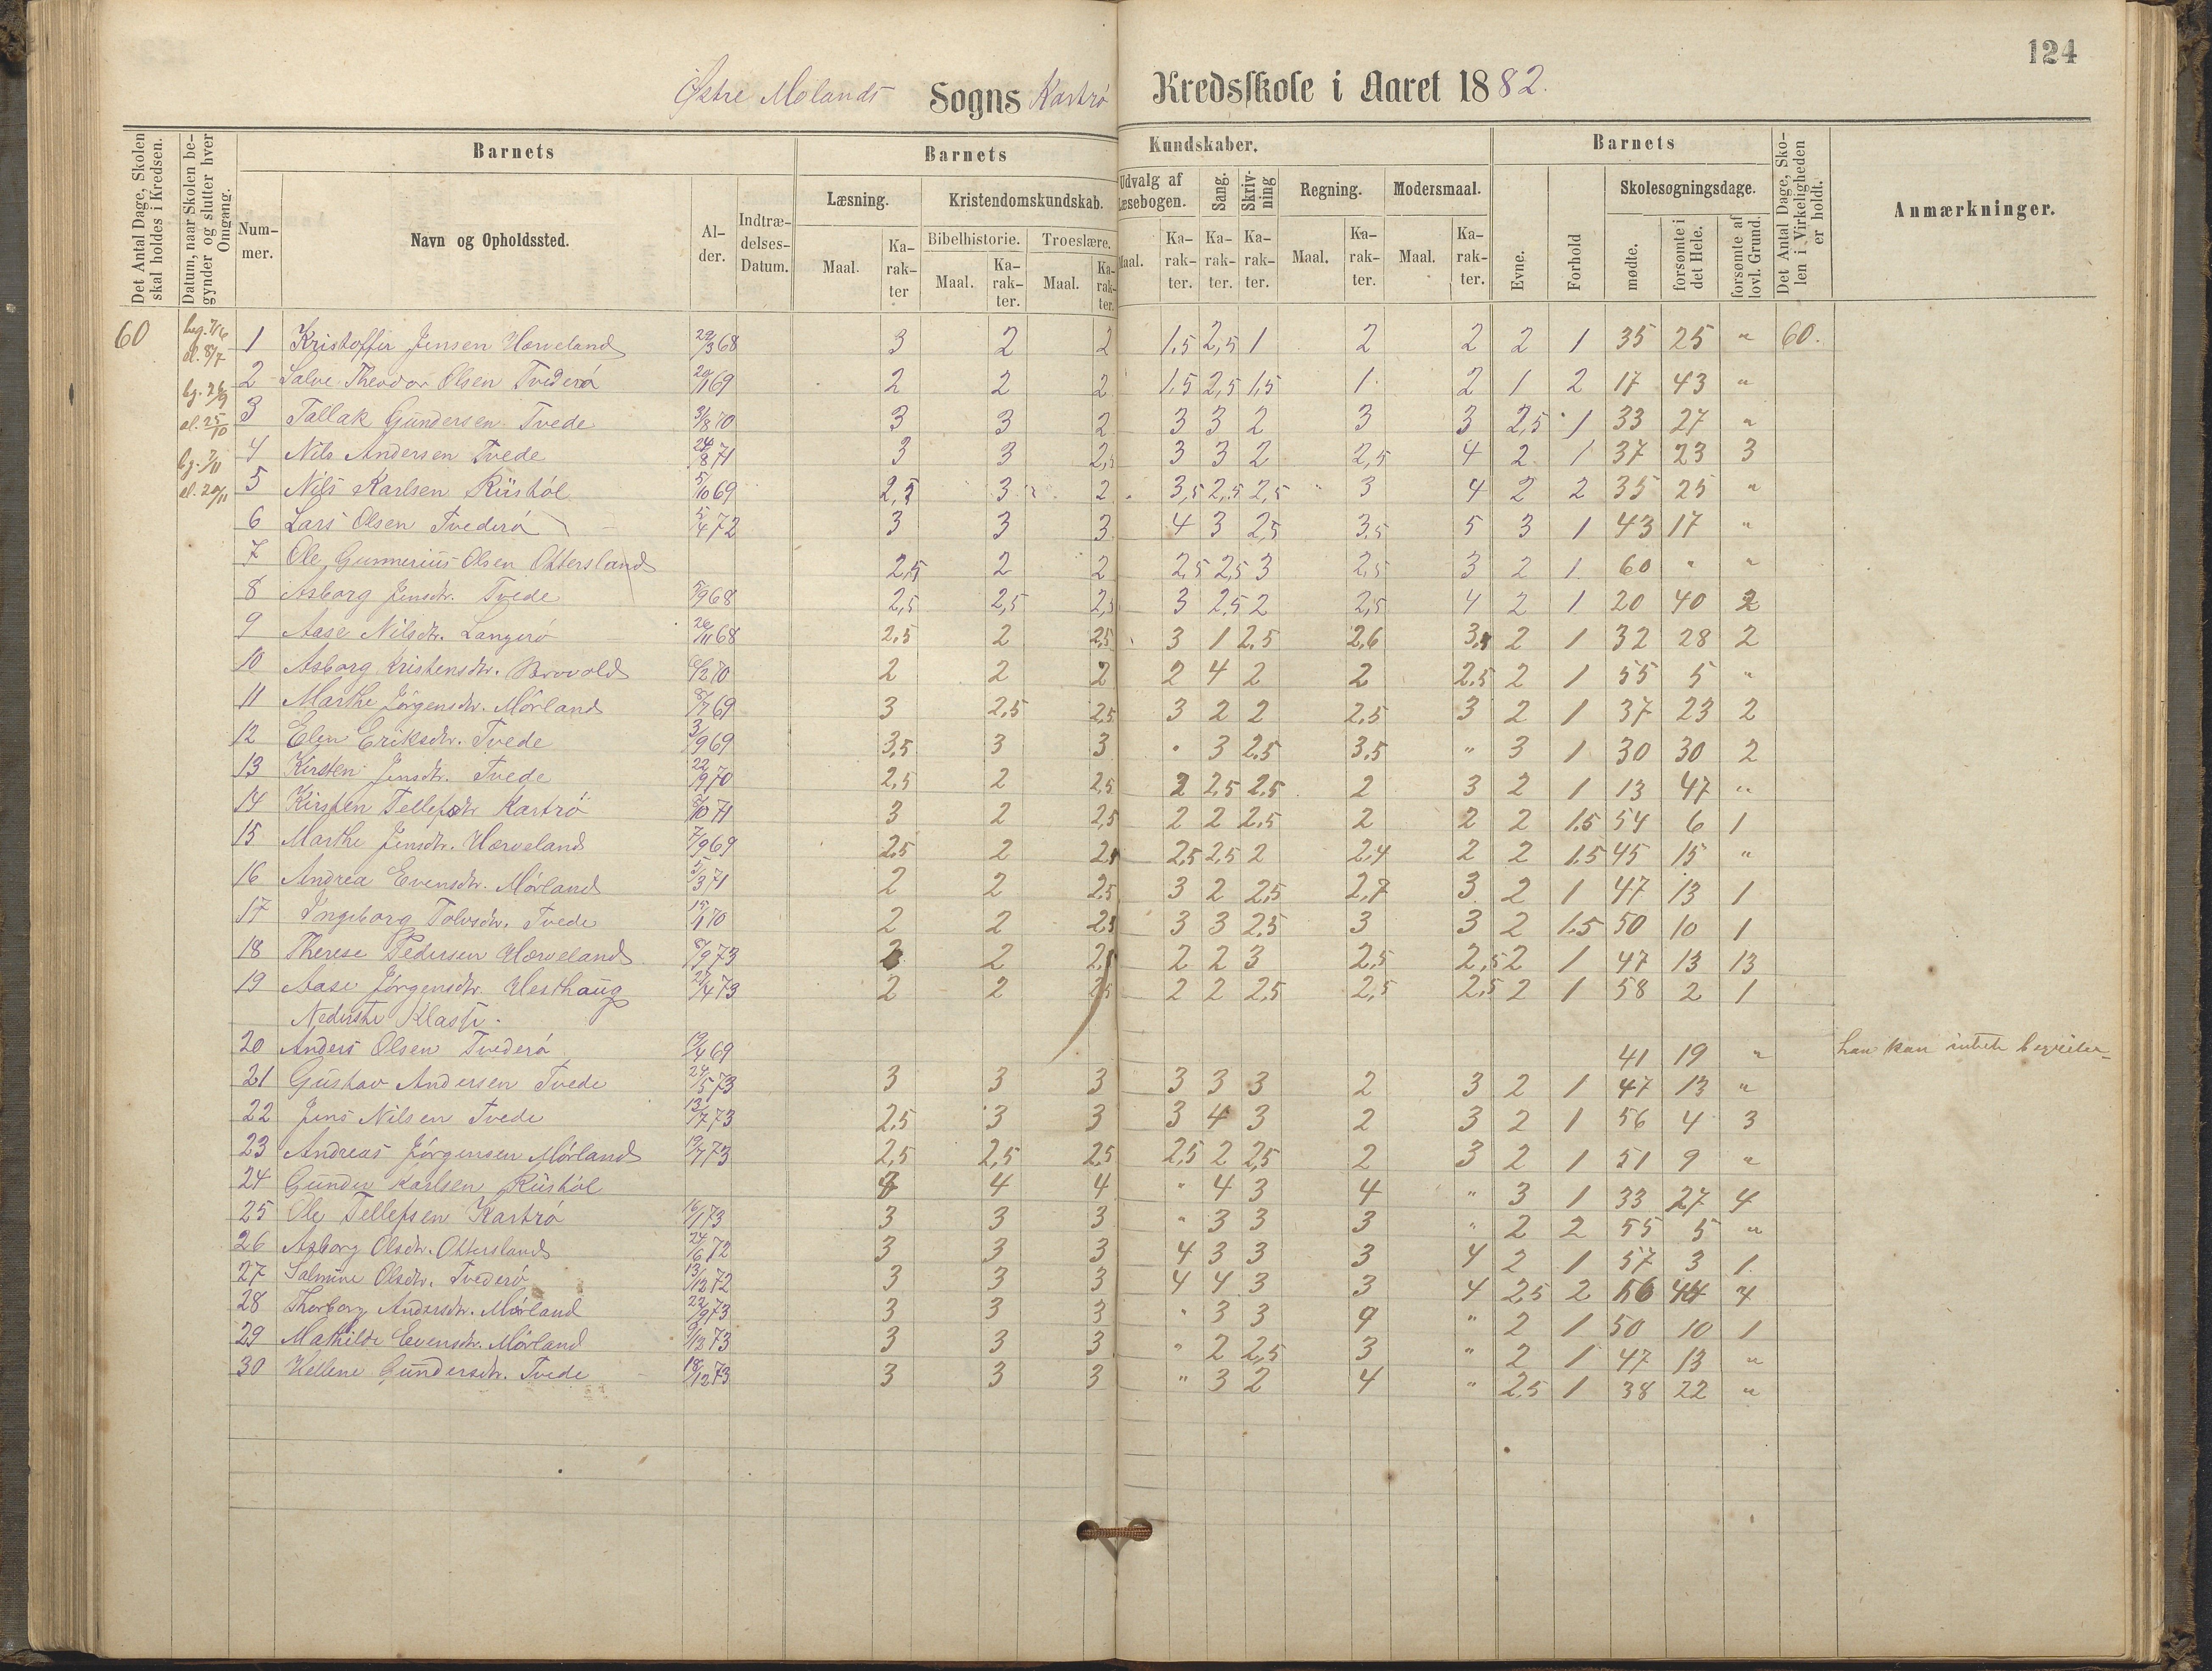 124
Østre Molands Sogns Kastrø Kredsskole i Aaret 1882.
Det Antal Dage, Skolen skal holdes i Kredsen.
Datum, naar Skolen begynder og slutter hver Omgang.
Barnets
Nummer.
Navn og Opholdssted.
Alder.
Indtrædelses-Datum.
Barnets Kundskaber.
Læsning.
Maal.
Karakter
Kristendomskundskab.
Bibelhistorie.
Maal.
Karakter.
Troeslære.
Maal.
Karakter.
Udvalg af Læsebogen.
Maal.
Karakter.
Sang.
Karakter.
Skrivning
Karakter.
Regning.
Maal.
Karakter.
Modersmaal.
Maal.
Karakter.
Barnets
Evne.
Forhold
Skolesøgningsdage.
mødte.
forsømte i det Hele.
forsømte af lovl. Grund.
Det Antal Dage, Skolen i Virkeligheden er holdt.
Anmærkninger.
60 1 Kristoffer Jensen Værveland 29/3 68 3 2 2 1,5 2,5 1 2 2 2 1 35 25 " 60.
2 Salve Theodor Olsen Tvederø 20/1 69 2 2 2 1,5 2,5 1,5 1 2 1 2 17 43 "
3 Tallak Gundersen Tvede 3/8 70 3 3 2 3 3 2 3 3 2,5 1 33 27 "
4 Nils Andersen Tvede 24/8 71 3 3 2,5 3 3 2 2,5 4 2 1 37 23 3
5 Nils Karlsen Rüshøl 5/10 69 2,5 3 2 3,5 2,5 2,5 3 4 2 2 35 25 "
6 Lars Olsen Tvederø 5/4 72 3 3 3 4 3 2,5 3,5 5 3 1 43 17 "
7 Ole Gunnerius Olsen Ottersland 2,5 2 2 2,5 2,5 3 2,5 3 2 1 60 " "
8 Asborg Jensdtr. Tvede 5/9 68 2,5 2,5 2,5 3 2,5 2 2,5 4 2 1 20 40 2
9 Aase Nilsdtr. Langerø 26/11 68 2,5 2 2,5 3 1 2,5 2,6 2 1 32 28 2
10 Asborg Kristensdtr. 6/2 70 2 2 2 2 4 2 2 2,5 2 1 55 5 "
11 Marthe Jørgensdtr. Mørland 8/7 69 3 2,5 2,5 3 2 2 2,5 3 2 1 37 23 2
12 Elen Eriksdtr. Tvede 3/9 69 3,5 3 3 " 3 2,5 3,5 " 3 1 30 30 2
13 Kirsten Jensdtr. Tvede 22/9 70 2,5 2 2,5 2 2,5 2,5 2 3 2 1 13 47 "
14 Kirsten Tellefsdtr Kastrø 8/10 71 3 2 2,5 2 2 2,5 2 2 2 1,5 54 6 1
15 Marthe Jensdtr. Værveland 7/9 69 2,5 2 2,5 2,5 2 2,4 2 2 1,5 45 15 "
16 Andrea Evensdtr. Mørland 5/3 71 2 2 2,5 3 2 2,5 2,7 3 2 1 47 13 1
17 Ingeborg Tolvsdtr. Tvede 70 2 2 2,5 3 3 2,5 3 3 2 1,5 50 10 1
18 Therese Pedersen Værveland 8/9 73 2 2 2,5 2 2 3 2,5 2,5 2 1 47 13 13
19 Aase Jørgensdtr. Vesthaug 27/4 73 2 2 2,5 2 2 2,5 2,5 2,5 2 1 58 2 1
Nederste Klasse.
20 Anders Olsen Tvederø 69 41 19 " han kan intet
21 Gustav Andersen Tvede 24/5 73 3 3 3 3 3 3 2 3 2 1 47 13 "
22 Jens Nilsen Tvede 13/7 73 2,5 3 3 3 4 3 2 3 2 1 56 4 3
23 Andreas Jørgensen Mørland 19/7 73 2,5 2,5 2,5 2,5 2 2,5 2 3 2 1 51 9 "
24 Gunder Karlsen Rüshøl 4 4 " 4 3 4 " 3 1 33 27 4
25 Ole Tellefsen Kastrø 16/1 73 3 3 3 " 3 3 3 " 2 2 55 5 "
26 Asborg Olsdtr. Ottersland 24/6 72 3 3 3 4 3 3 3 4 2 1 57 3 1
27 Salmine Olsdtr. Tvederø 13/12 72 3 3 3 4 4 3 3 4 2,5 2 44 4
28 Thorborg Andersdtr. Mørland 22/9 73 3 3 3 " 3 3 " 2 1 50 10 1
29 Mathilde Evensdtr. Mørland 9/12 73 3 3 3 " 2 2,5 3 " 2 1 47 13 "
30 Hellene Gundersdtr. Tvede 18/12 73 3 3 3 " 3 2 4 " 2,5 1 38 22 "